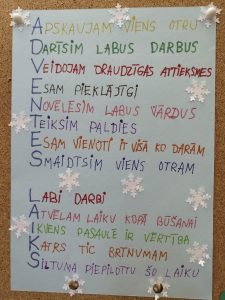 APSKAUJAM VIENS OTRU
DARĪSIM LABUS DARBUS
VEIDOJAM DRAUDZĪGAS ATTIEKSMES
ESAM PIEKLĀJĪGI
NOVĒLĒSIM LABUS VĀRDUS
TEIKSIM PALDIES
ESAM VIENOTI IT VISĀ KO DARĀM
SMAIDĪSIM VIENS OTRAM
LABI DARBI
ATVĒLAM LAIKU KOPĀ BŪŠANAI
IKVIENS PASAULĒ IR VĒRTĪBA
KATRS TIC BRĪNUMAM
SILTUMA PIEPILDĪTU ŠO LAIKU